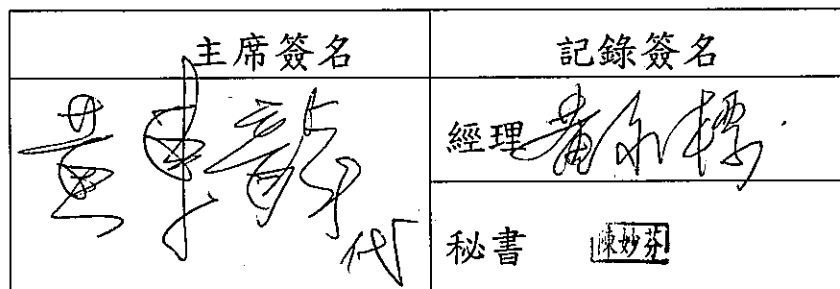 主席簽名
記錄簽名
黃
代
經理 黃
秘書 陳妙芬